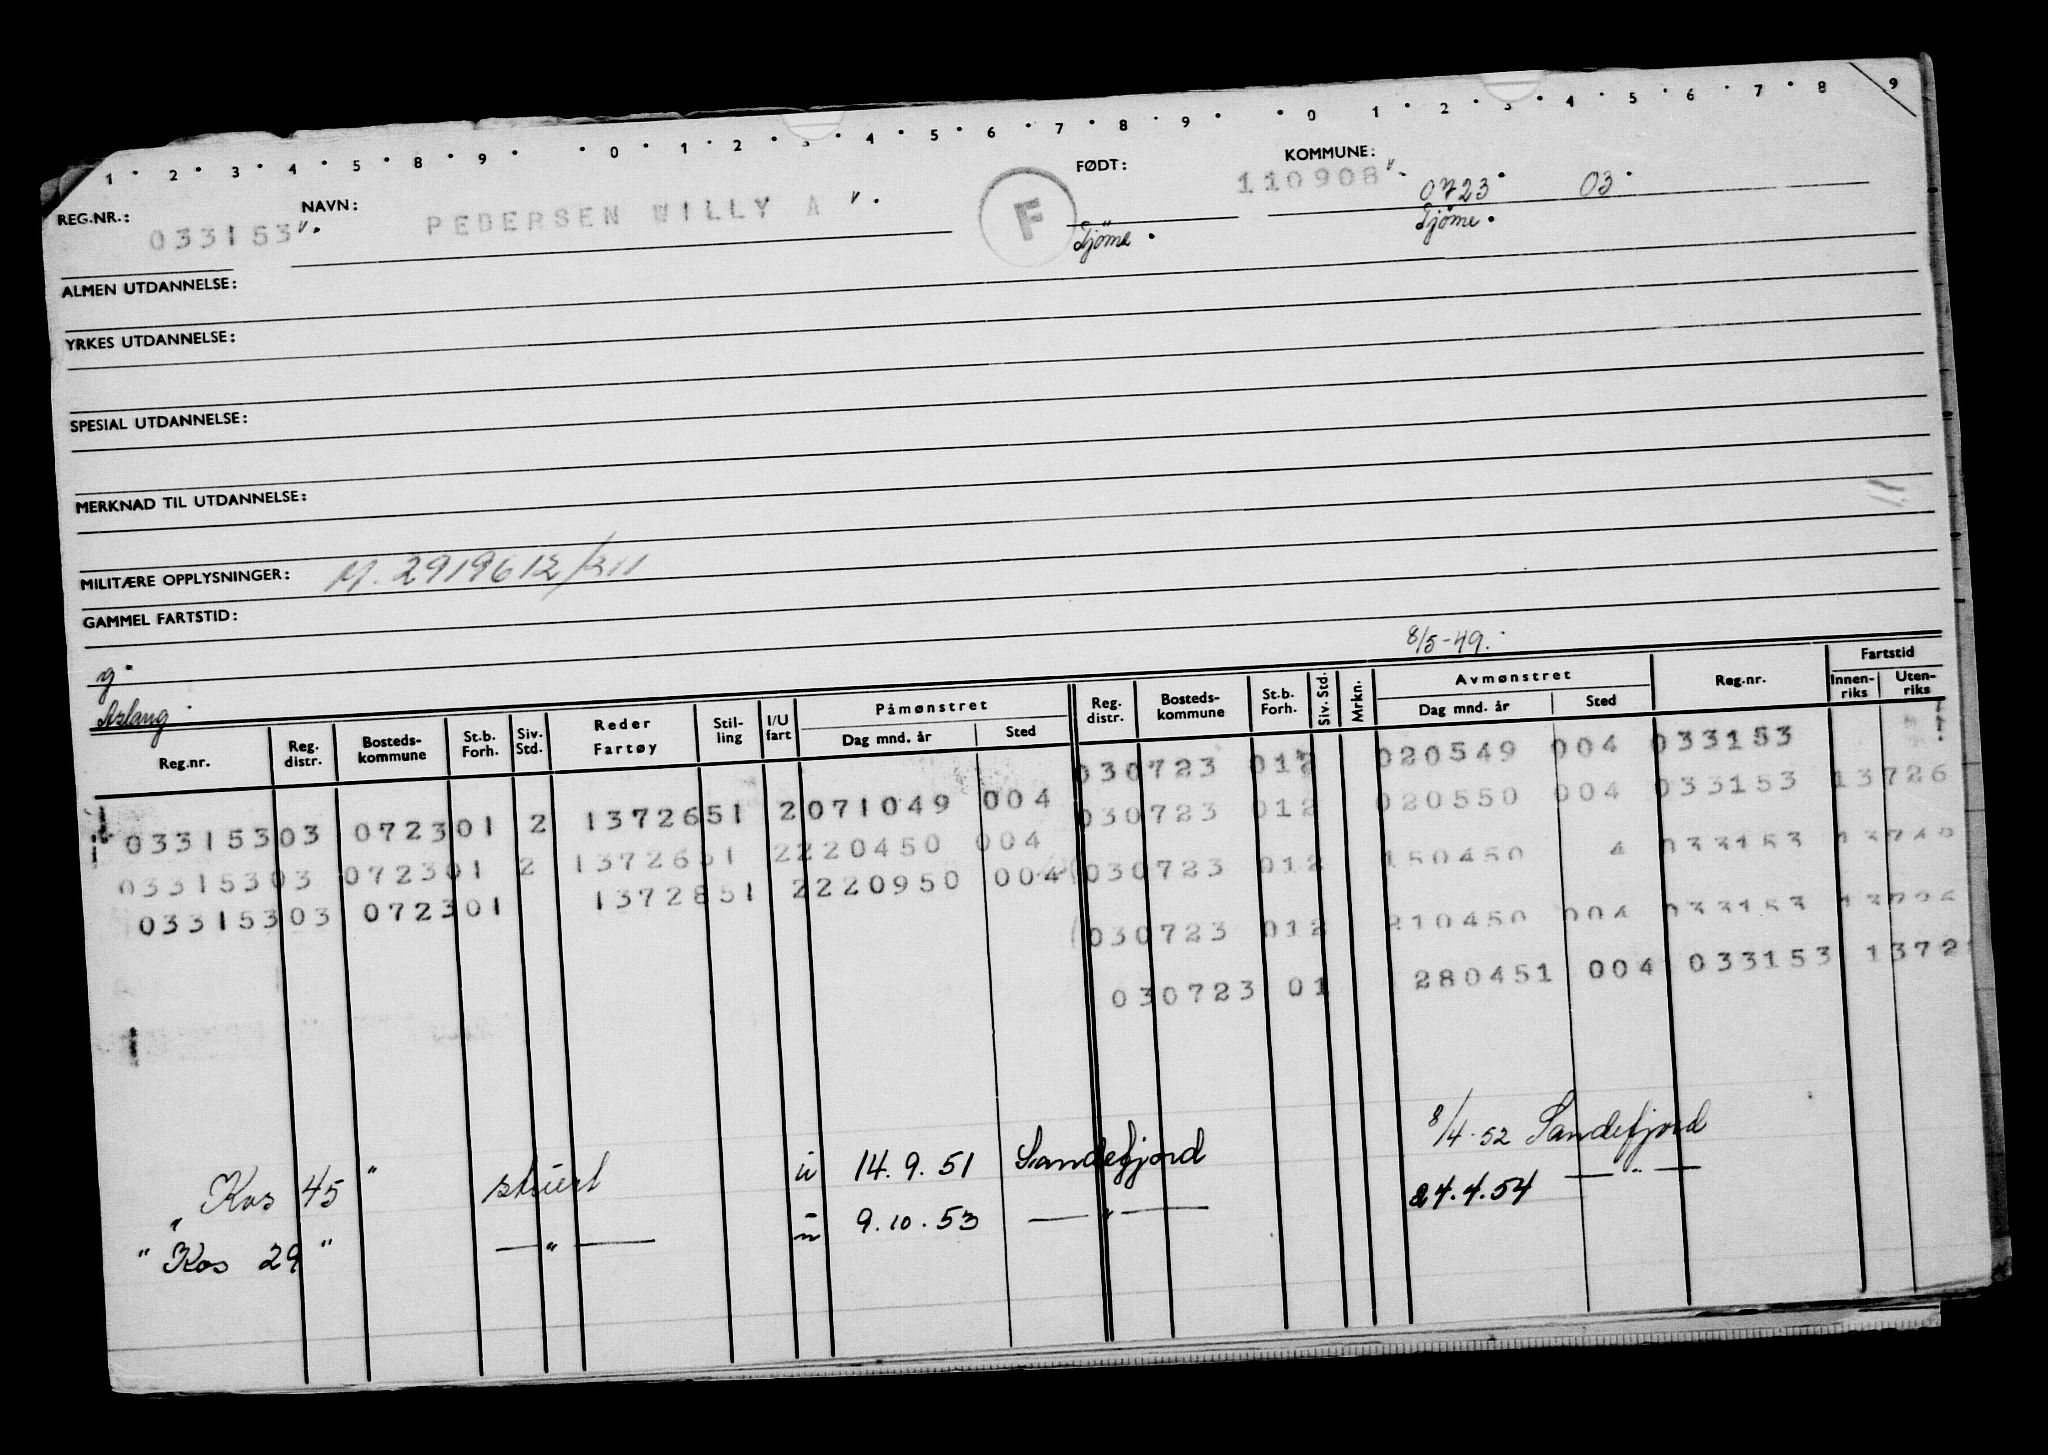 1 • 2 • 3 • 4 • 5 • 8 • 9 • • 0 • 1 • 2 • 3 • 4 • 5 • 6 • 7 • 8 • 9 • • 0 1 • 2 • 3 • 4 • 5 • 6 • 7 • 8 9
REG.NR.: 033153 v. NAVN: PEDERSEN WILLY A v. F FØDT: KOMMUNE: 110908 v. 0723 • 03 •
Tjöme • Tjöme •
ALMEN UTDANNELSE:
YRKES UTDANNELSE:
SPESIAL UTDANNELSE:
MERKNAD TIL UTDANNELSE:
MILITÆRE OPPLYSNINGER: M. 2919612/311
GAMMEL FARTSTID:
8/5-49.
g.
Aslang.
Reg.nr. Reg. distr. Bosteds-kommune St.b. Forh. Siv. Std. Reder Fartøy Stil-ling I/U fart Påmønstret Dag mnd. år Sted Reg. distr. Bosteds-kommune St.b. Forh. Siv. Std. Mrkn. Avmønstret Dag mnd. år Sted Reg.nr. Fartstid Innen-riks Uten-riks
030723 012 020549 004 033153
03315303 072301 2 1372651 2071049 004 030723 012 020550 004 033153 13726
03315303 072301 2 1372651 2220450 004 030723 012 150450 4 033153
03315303 072301 1372851 2220950 004 030723 012 210450 004 033153
030723 01 280451 004 033153 1372
„ Kos 45 " stuert u 14.9.51 Sandefjord 8/4.52 Sandefjord
" Kos 29 " — " — u 9.10.53 — " — 24.4.54 — " —